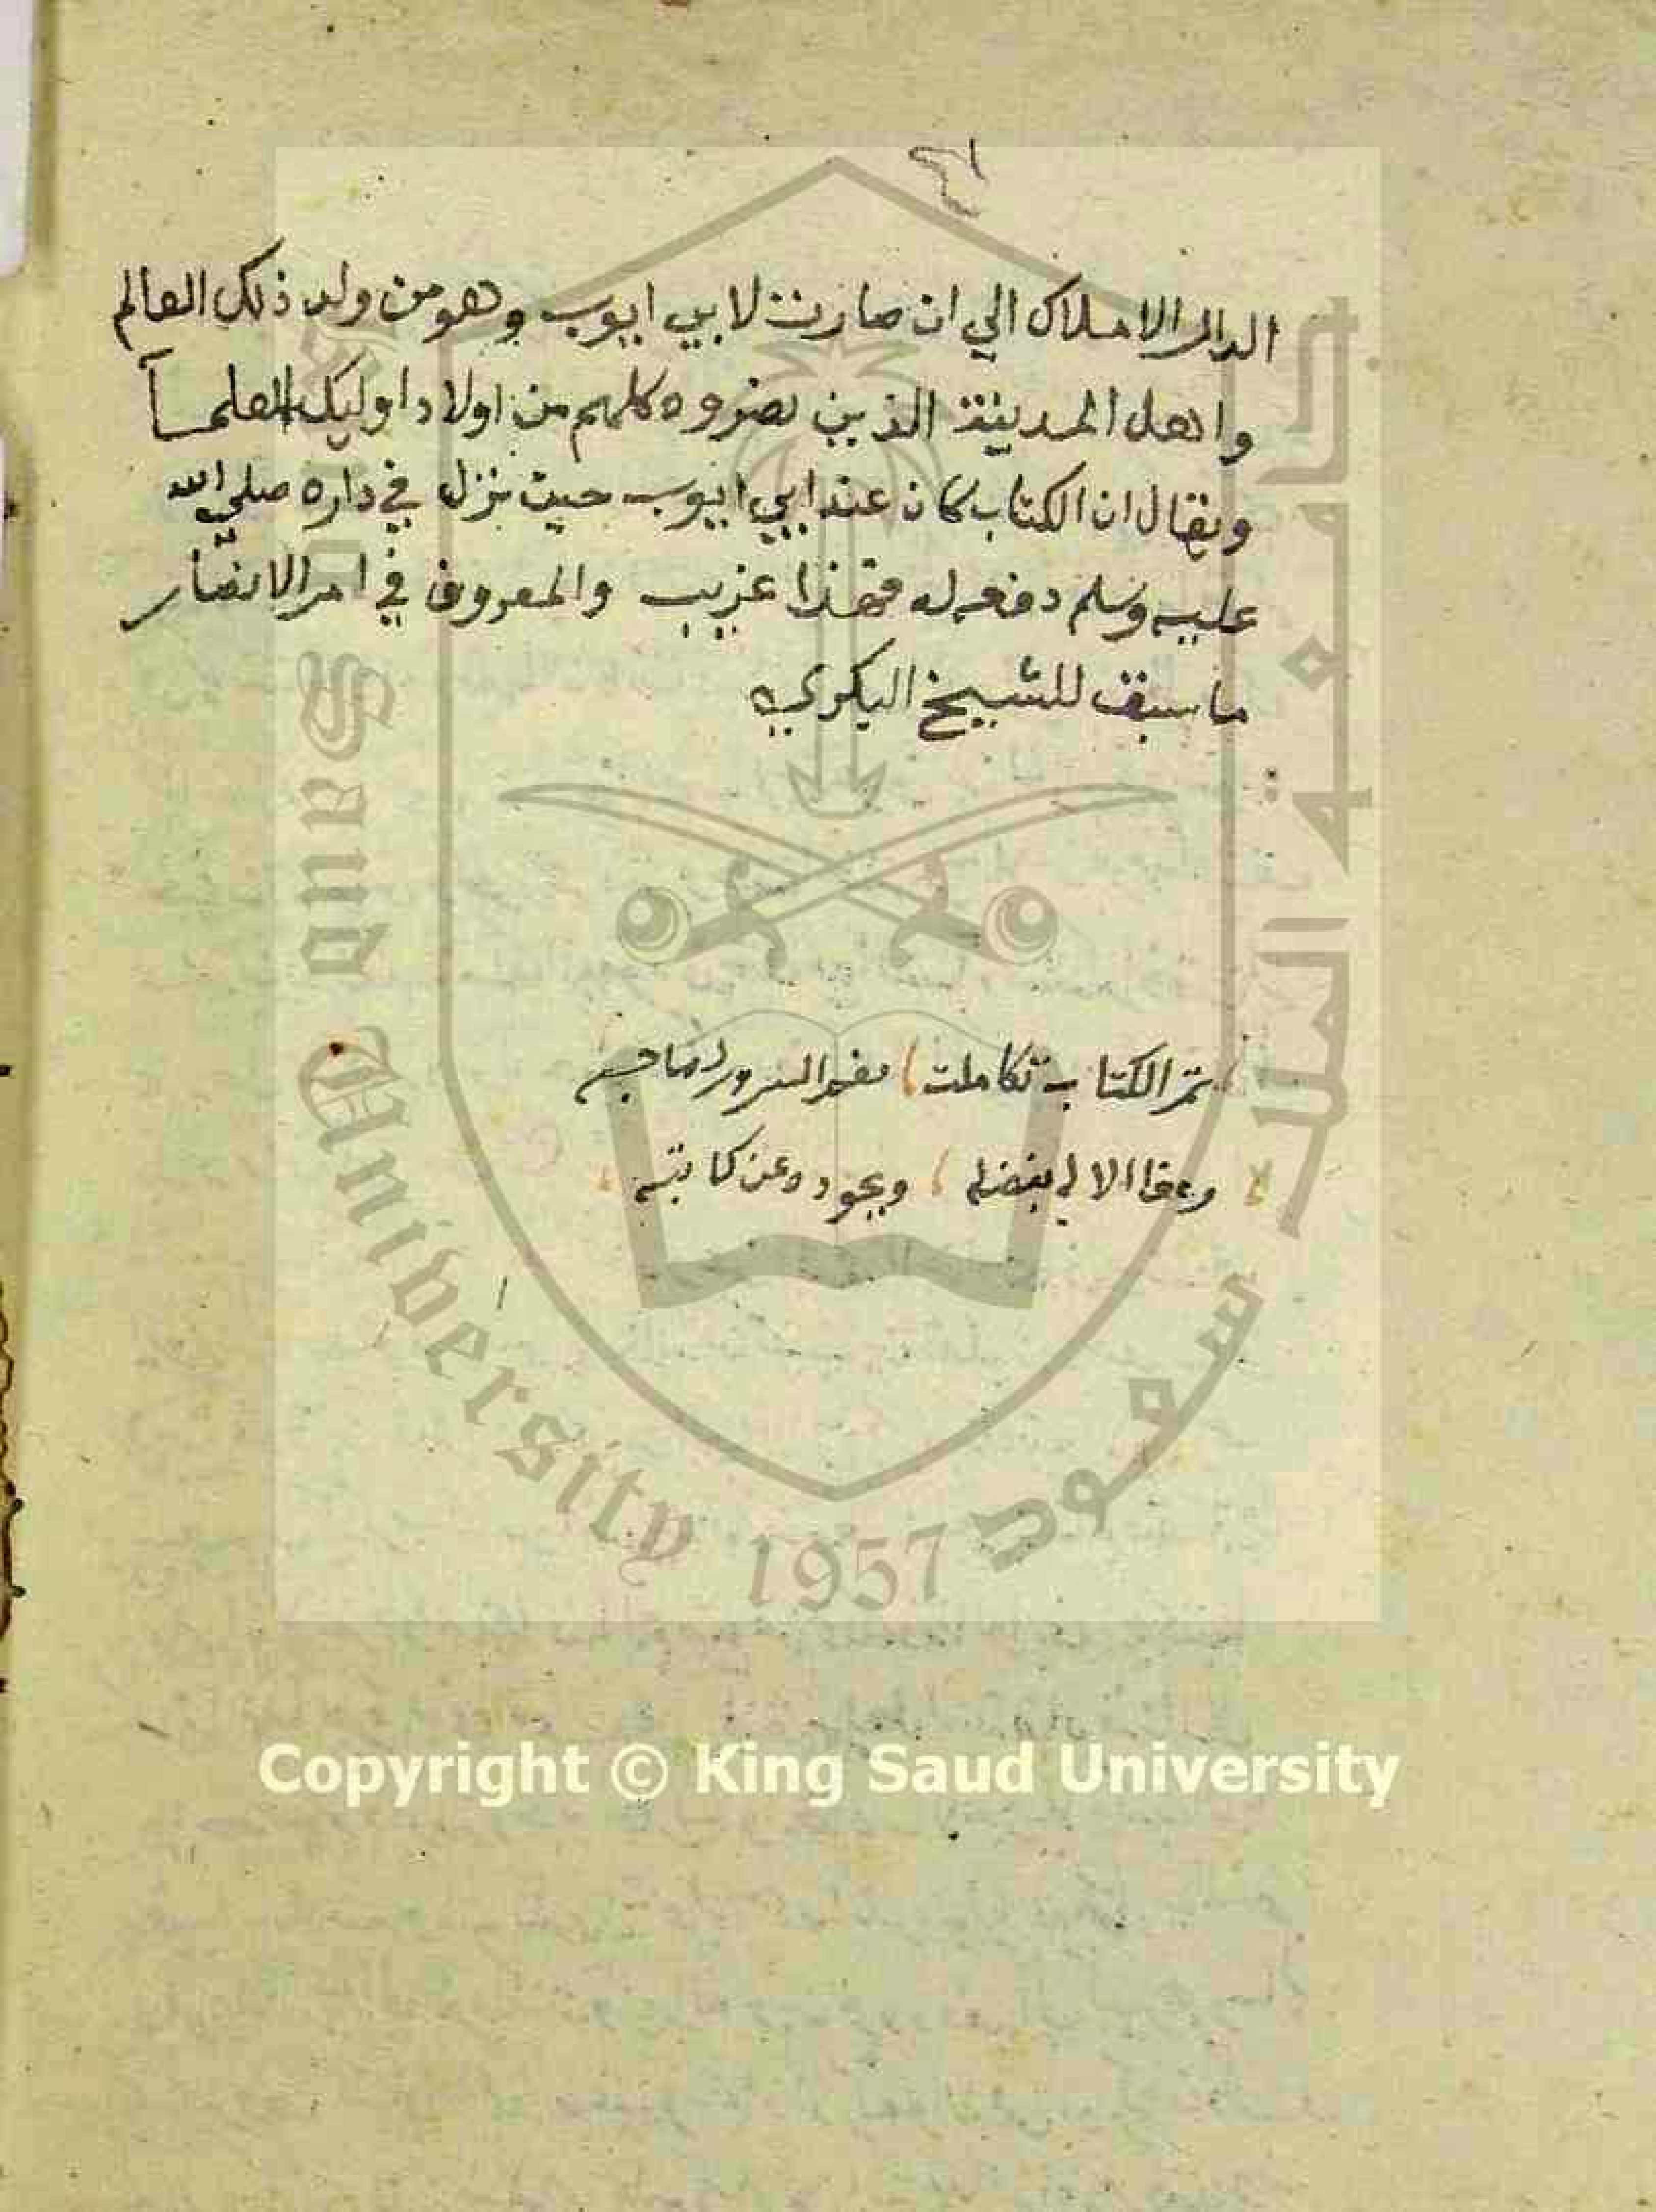 الدار الاملاك الي ان صارت لابي ايوب وهو من ولد ذلك العالم
واهل المدينة الذين نصروه كلهم من اولاد اوليك العلمآ
ويقال ان الكتاب كان عند ابي ايوب حين نزل في داره صلي الله
عليه وسلم دفعه له فهذا غريب والمعروف في امر الانصار
ما سبق للشيخ البكري
تم الكتاب تكاملت نعم السرور لصاحبه
وعفا الاله بفضله وبجوده عن كاتبه
جامعة الملك سعود
King Saud University
1957
Copyright © King Saud University